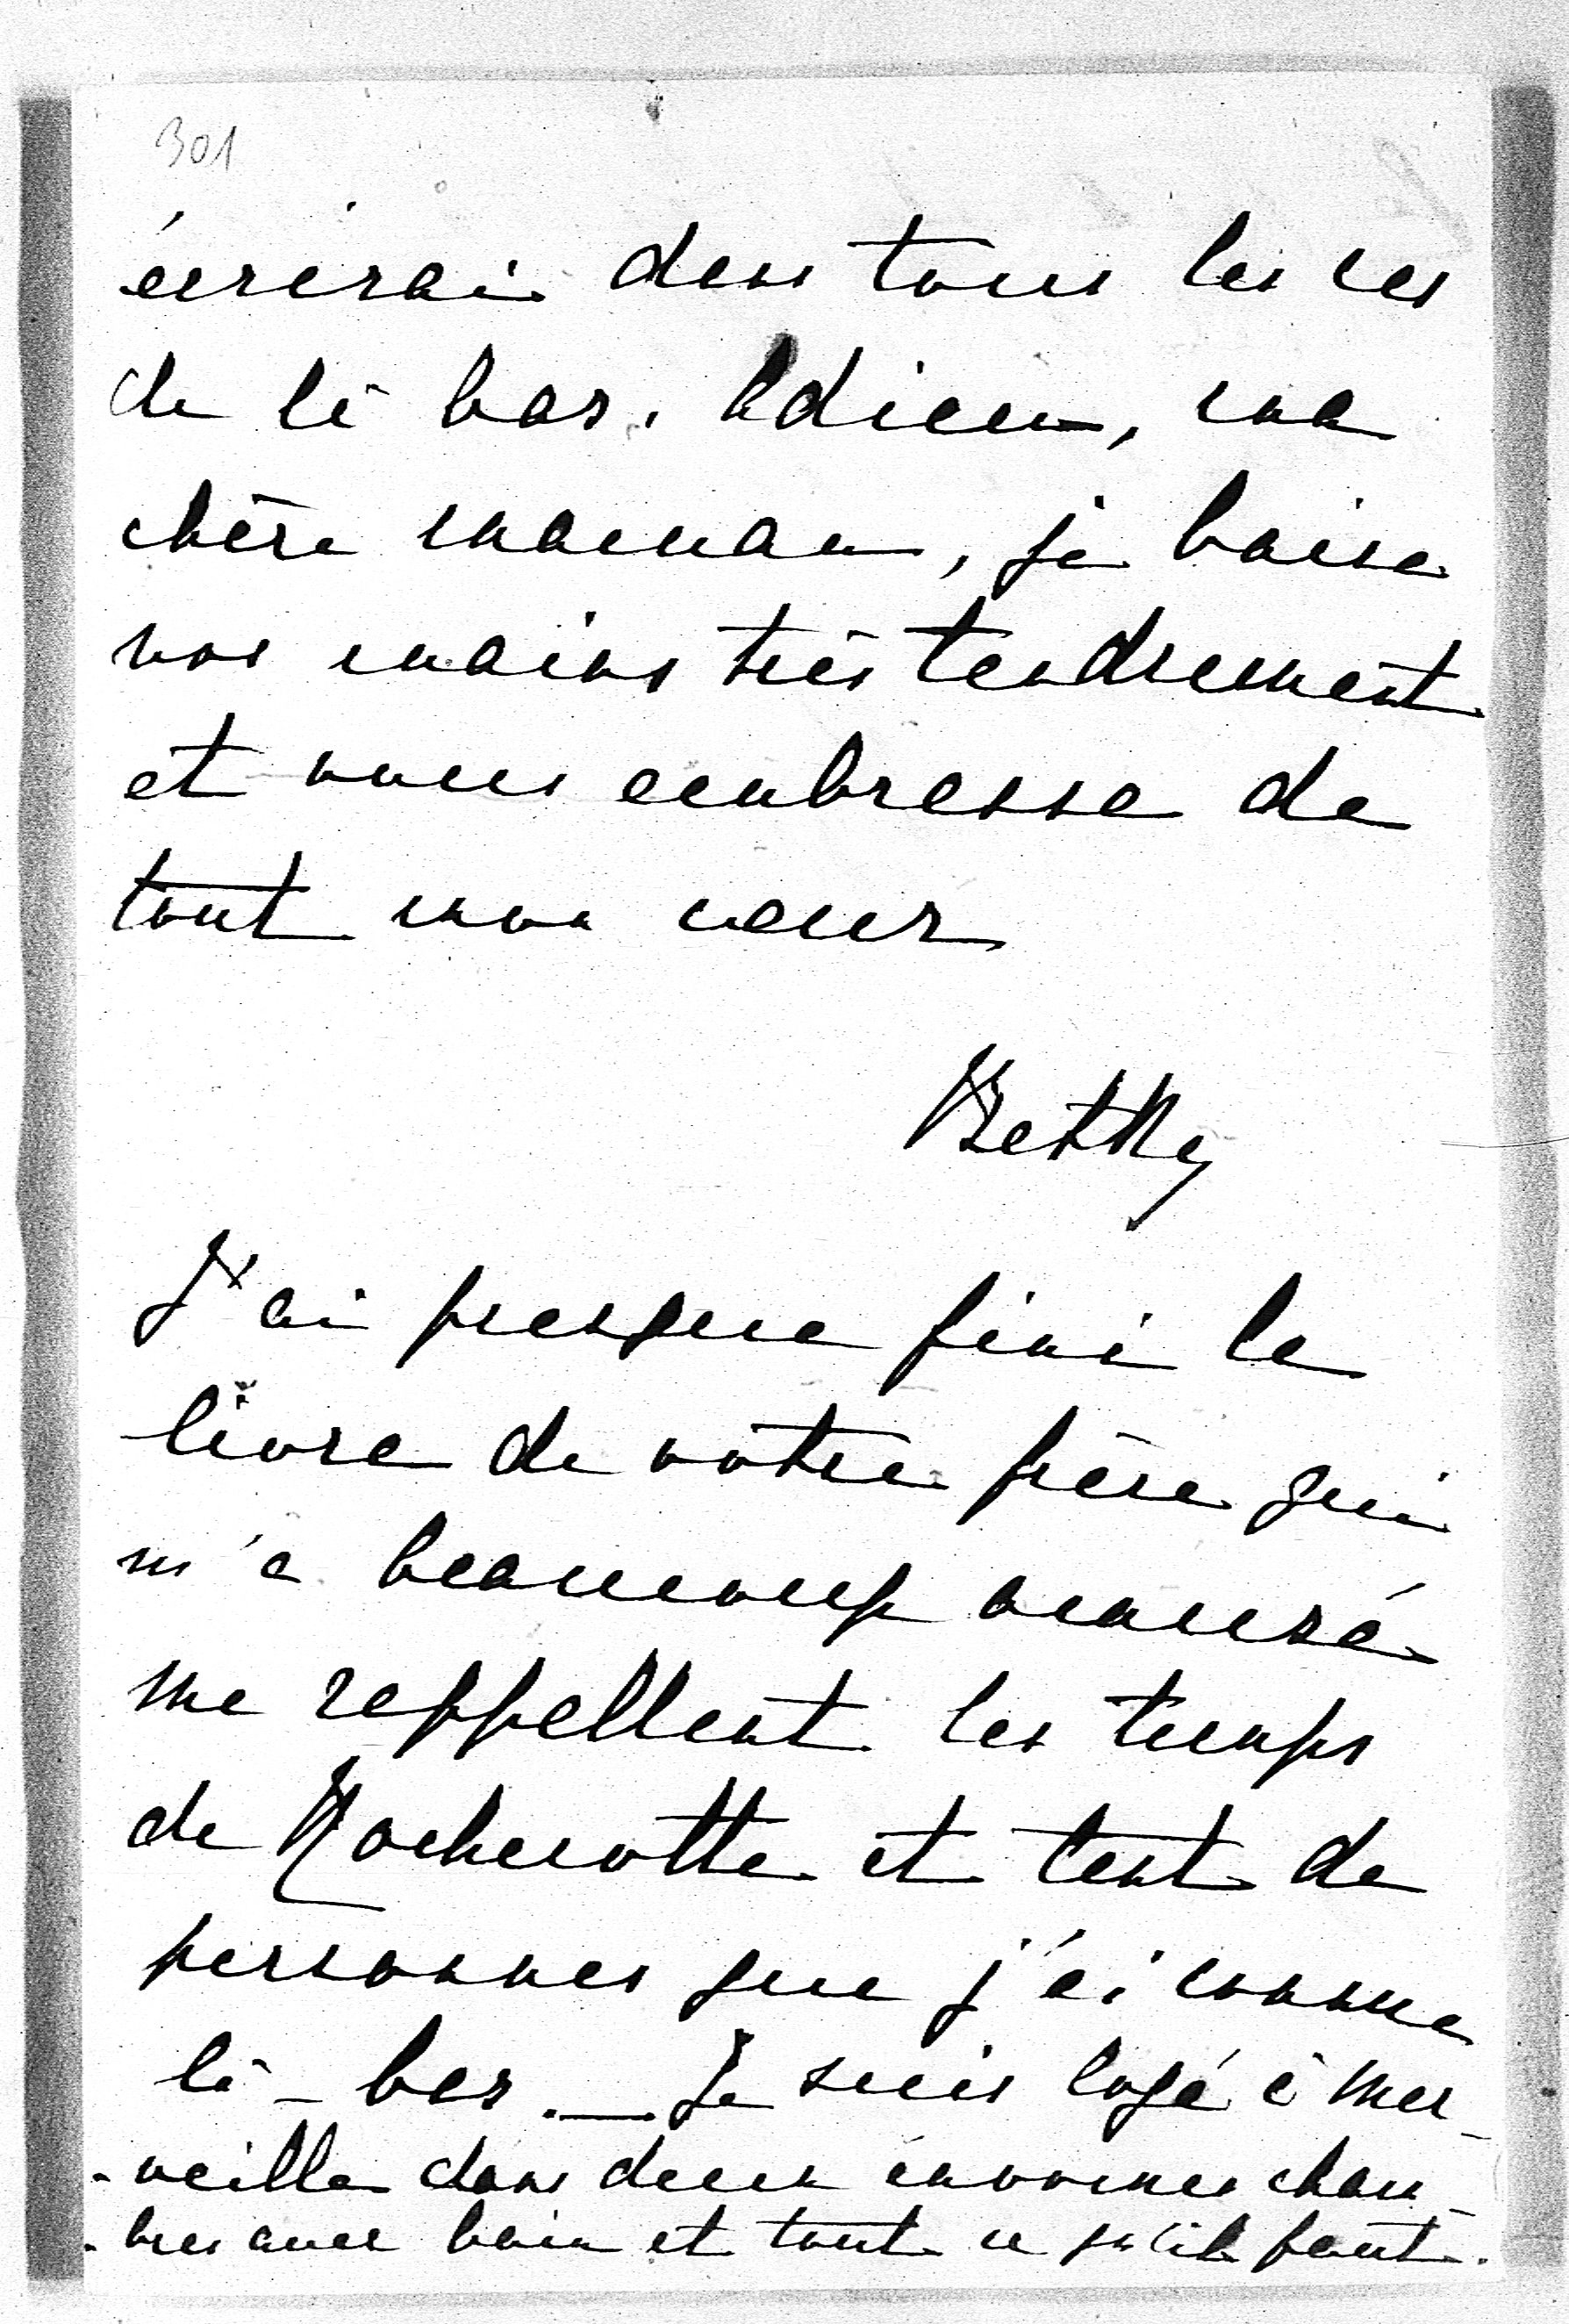 301
écrirai dans tous les cas
de là bas. Adieu, ma
chère maman, je baise
vos mains très tendrement
et vous embrasse de
tout mon cœur
Betky
J'ai presque fini le
livre de votre frère qui
m'a beaucoup amusé
me rappellent les temps
de Rochecotte et tant de
personnes que j'ai connue
là-bas. — Je suis logé à mer-
-veille dans deux énormes cham-
-bres avec bain et tout ce qu'il faut.